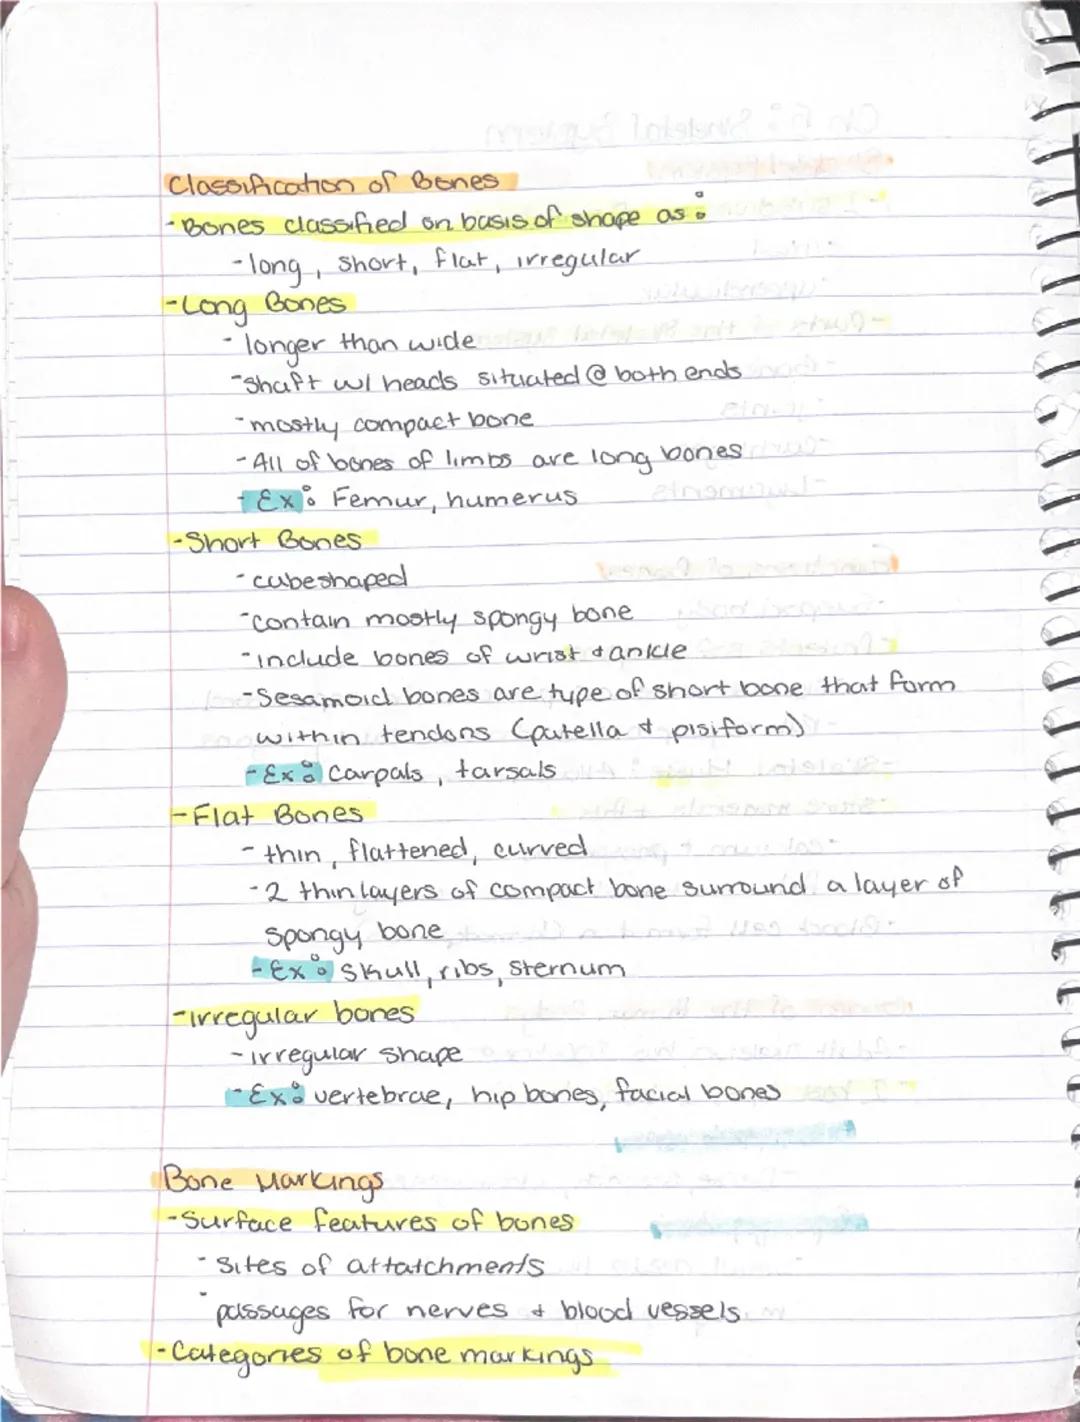 Classification of Bones
-Bones classified on basis of shape as:
-long, short, flat, irregular
-Long Bones
-longer than wide
-shaft w/ heads situated @ both ends
-mostly compact bone
-All of bones of limbs are long bones
-Ex: Femur, humerus
-Short Bones
-cubeshaped
-contain mostly spongy bone
-include bones of wrist & ankle
-Sesamoid bones are type of short bone that form
within tendons (patella & pisiform)
-Ex: Carpals, tarsals
-Flat Bones
-thin, flattened, curved
-2 thin layers of compact bone surround a layer of
spongy bone
-Ex: Skull, ribs, Sternum
-irregular bones
-irregular shape
-Ex: vertebrae, hip bones, facial bones
Bone Markings
-Surface features of bones
-sites of attatchments
-passages for nerves & blood vessels
-Categories of bone markings